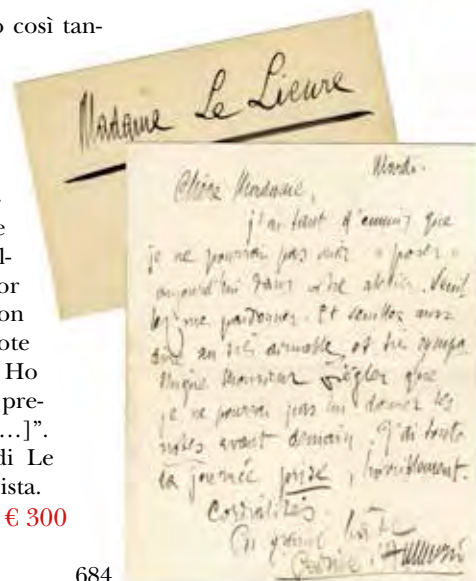 o così tan-
e
l-
or
on
ote
Ho
pre-
…]”.
di Le
ista.
€ 300
684
Madame Le Lieure
Mardi.
Chère Madame,
j'ai tant d'ennuis que
je ne pourrai pas venir « poser »
aujourd'hui dans votre atelier. Veuil
lez me pardonner. Et veuillez aussi
dire au très aimable et très sympa
thique Monsieur Ziègler que
je ne pourrai pas lui donner les
notes avant demain. J'ai toute
la journée prise, horriblement.
Cordialités
En grande hâte